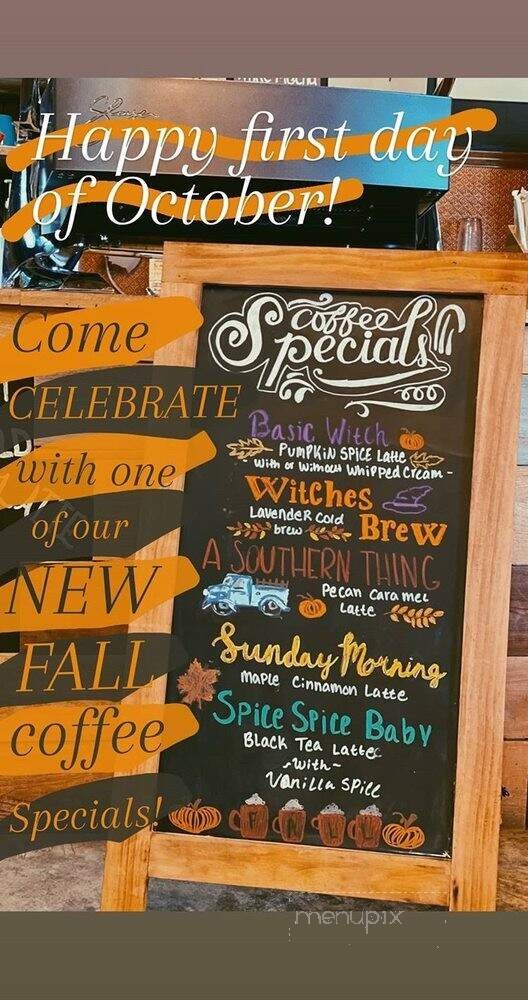 Happy first day
of October!
Come
CELEBRATE
with one
of our
NEW
FALL
coffee
Specials!
Coffee
Specials
Basic Witch
PUMPKIN SPICE Latte
- with or without whipped cream -
Witches
Lavender cold
brew
Brew
A SOUTHERN THING
Pecan caramel
Latte
Sunday Morning
Maple Cinnamon Latte
Spice Spice Baby
Black Tea Latte
-with-
Vanilla SPICE
menupix